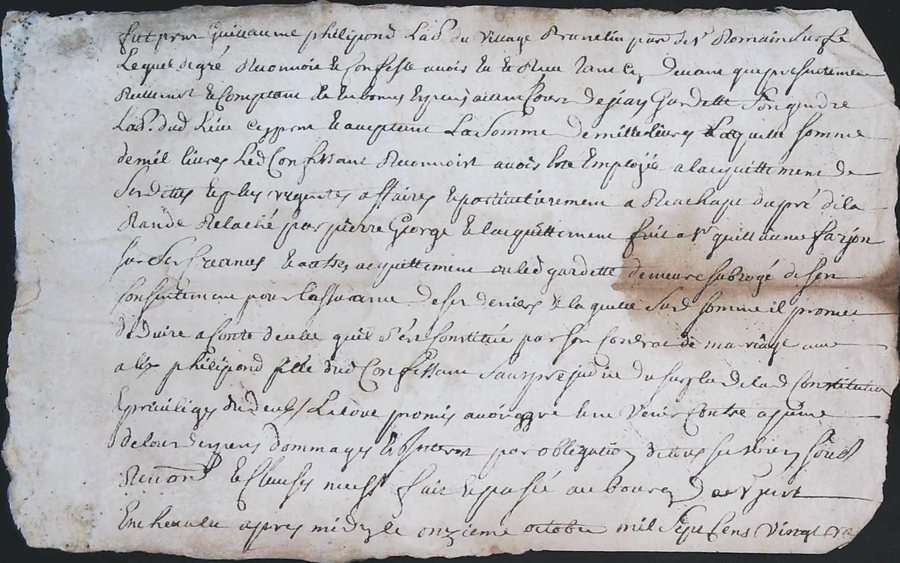 fut present guillaume philipond Lab. du village Brunelin par de St Romain
Lequel de gré Reconnois et Confesse avoir Eu et Receu devant que presentement
Reellement et Comptant de en bonnes Especes aïant Cours de jean Gardette Son gendre
Lab. dud lieu cy present et acceptant La Somme de mille livres Laquelle somme
de mil livres Led Confessant Reconnoist avoir Employée a lacquittement de
Ses dettes et plus urgentes affaires et particulièrement a Reachapt du pré de la
Relaché par pierre George et lacquittement fait a Sr guillaume farjon
sur Ses acquittement ou led gardette demeure subrogé de son
Consentement pour lassurance de ses deniers et laquelle Susd somme il promet
deduire a Conte de celle quil s'est Constituée par Son Contrac de mariage avec
philipond fille dud Confessant Sans préjudice du surplus de lad Constitution
privileges du deub Le tout promis avoir agré venir Contre a peine
de tous despens dommages Interest par obligation de tous ses biens
Renon et Clauses fait et passé au bourg
apres midy le onzieme octobre mil Sept Cens Vingt